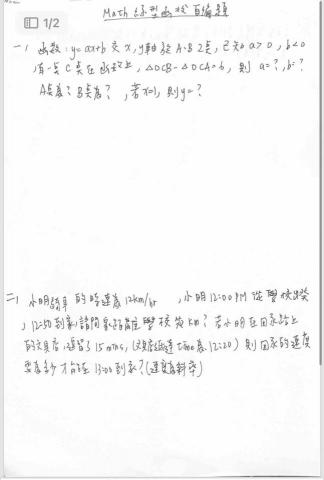 1/2
Math 線型函數 自編題
一、函數:y=ax+b 交 x,y軸於 A.B 2點,已知 a>0,b<0
有一點 C 點在函數上,△OCB-△OCA=6,則 a=?,b=?
A點為?B點為?,若x=1,則y=?
二、小明騎車的時速為12km/hr,小明12:00PM從學校出發
,12:50到家,請問家距離學校幾km?若小明在回家路上
的文具店逗留了15mins,(文具店抵達time為12:20)則回家的速度
要為多少才能在13:00到家?(速度為斜率)